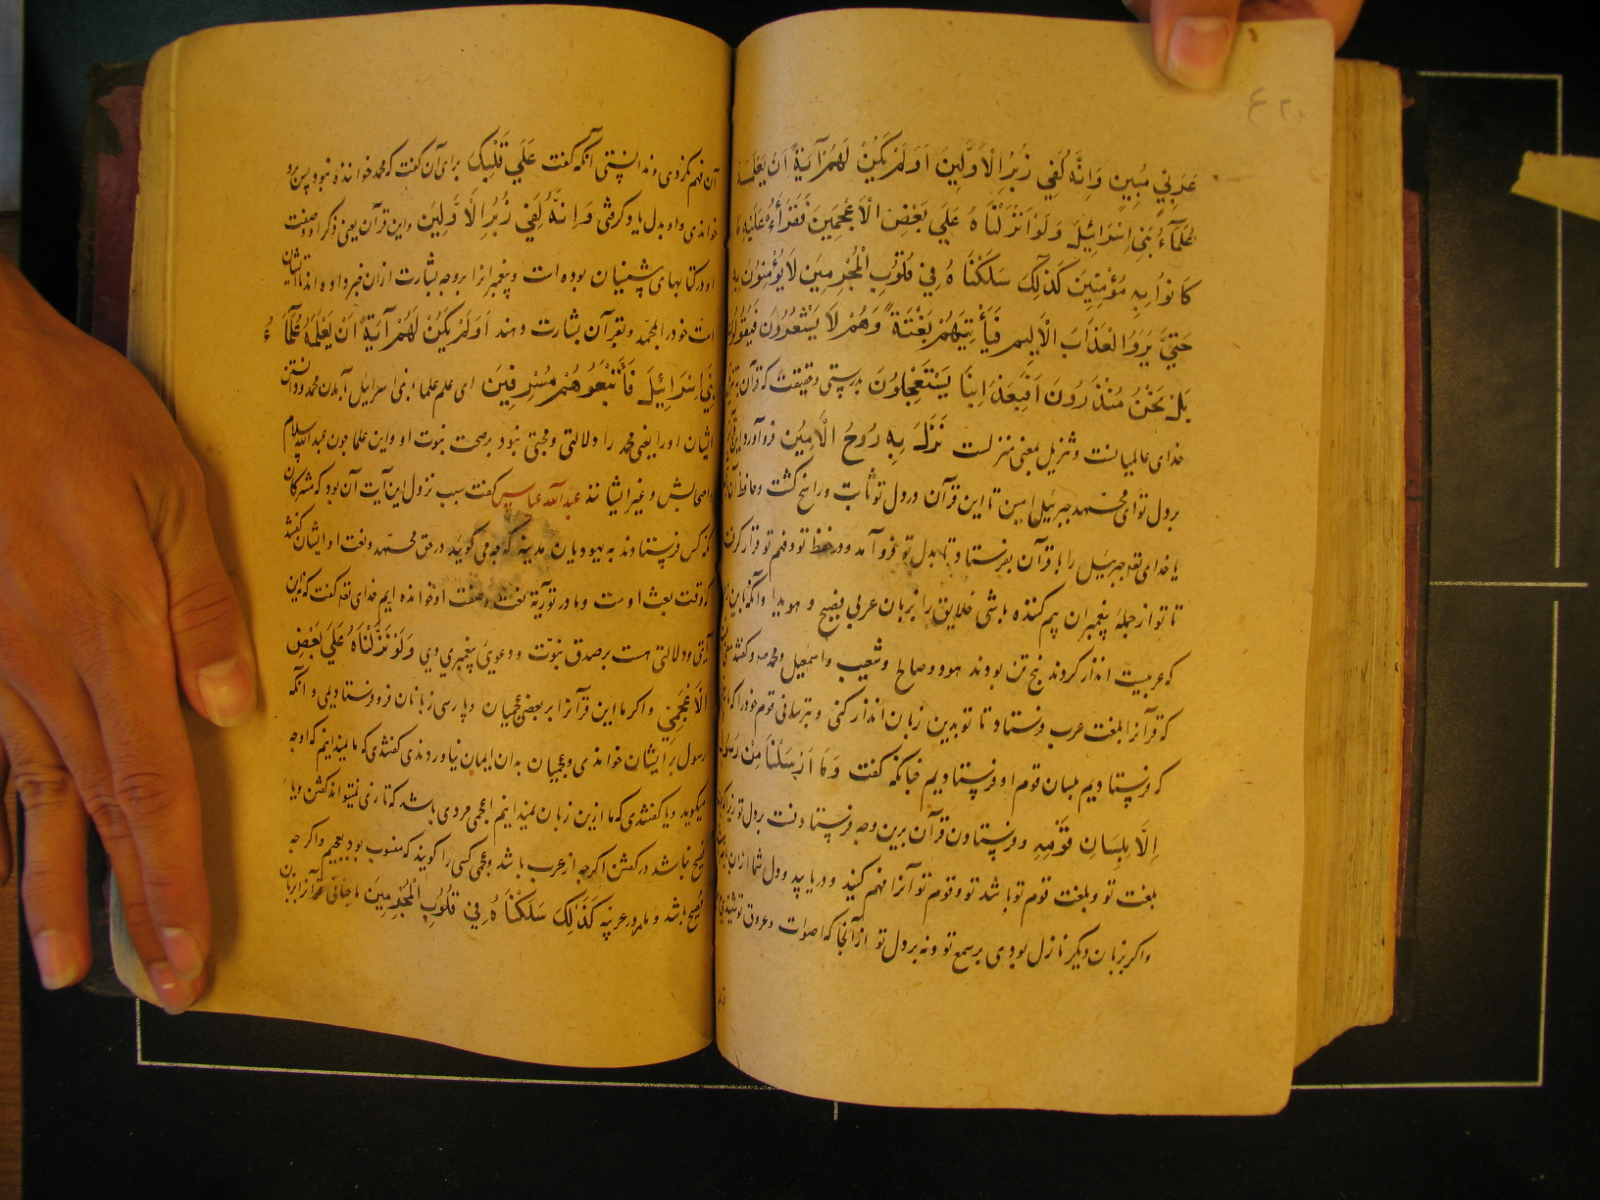 ۴۲۰
عَرَبِيٍّ مُبِينٍ وَاِنَّهُ لَفِي زُبُرِ الْاَوَّلِينَ اَوَلَمْ يَكُنْ لَهُمْ آيَةً اَنْ يَعْلَمَهُ
عُلَمَآءُ بَنِي اِسْرَائِيلَ وَلَوْ نَزَّلْنَاهُ عَلَي بَعْضِ الْاَعْجَمِينَ فَقَرَأَهُ عَلَيْهِمْ مَا
كَانُوا بِهِ مُؤْمِنِينَ كَذَلِكَ سَلَكْنَاهُ فِي قُلُوبِ الْمُجْرِمِينَ لَا يُؤْمِنُونَ بِهِ
حَتَّيٰ يَرَوُا الْعَذَابَ الْاَلِيمَ فَيَأْتِيَهُمْ بَغْتَةً وَهُمْ لَا يَشْعُرُونَ فَيَقُولُوا
بَلْ نَحْنُ مُنْذَرُونَ اَفَبِعَذَابِنَا يَسْتَعْجِلُونَ بدرستی و حقیقت که قرآن
خدای عالمیانست و تنزیل بمعنی منزلست نَزَلَ بِهِ رُوحُ الْاَمِينِ فرو آورد این قرآن
بر دل تو ای محمد جبرئیل امین تا این قرآن در دل تو ثابت و راسخ گشت و حافظ
یا خدای تعه جبرئیل را با قرآن بفرستاد تا بدل تو فرو آمد و در حفظ تو و فهم تو قرار گرفت
تا تو از جملهٔ پیغمبران بیم کننده باشی خلایق را بزبان عربی فصیح و هویدا و آنکه باین
که عربیت انذار کردند پنج تن بودند هود و صالح و شعیب و اسمعیل و محمد و گفتند
که قرآنرا بلغت عرب فرستاد تا تو بدین زبان انذار کنی و بترسانی قوم خود را که ما
که فرستادیم بلسان قوم او فرستادیم چنانکه گفت وَمَا اَرْسَلْنَا مِنْ رَسُولٍ
اِلَّا بِلِسَانِ قَوْمِهِ و فرستادن قرآن برین وجه فرستادنت بر دل تو زیرا که
بلغت تو و بلغت قوم تو باشد تو و قوم تو آنرا فهم کنید و دریابید و دل شما از آن
و اگر بزبان دیگر نازل بودی بر سمع تو و نه بر دل تو از آنجا که اصوات و حروف شنیدی
آن فهم نکردی و ندانستی آنکه گفت عَلَي قَلْبِكَ برای آن گفت که محمد خواننده نبود پس
خواندی و او بدل یاد گرفتی وَاِنَّهُ لَفِي زُبُرِ الْاَوَّلِينَ و این قرآن یعنی ذکر او و صفت
او در کتابهای پیشینیان بوده است و پیغمبرانرا بر وجه بشارت از ان خبر داده اند تا ایشان
امت خود را بمحمد و بقرآن بشارت دهند اَوَلَمْ يَكُنْ لَهُمْ آيَةً اَنْ يَعْلَمَهُ عُلَمَآءُ
بَنِي اِسْرَائِيلَ فَأَتْبَعُوهُمْ مُشْرِقِينَ ای علم علماء بنی اسرائیل آمدن محمد و دانستن
ایشان او را یعنی محمد را دلالتی و حجتی نبود بر صحت نبوت او و این علما چون عبد الله سلام
و اصحابش و غیر ایشانند عبد الله عباس گفت سبب نزول این آیت آن بود که مشرکان
مکه کس فرستادند به یهودیان مدینه که چه می گویید در حق محمد و نعت او ایشان گفتند
که وقت بعث اوست و ما در توریة نعت و صفت او خوانده ایم خدای تعه گفت که این
آیتی و دلالتی هست بر صدق نبوت و دعوی پیغمبری وی وَلَوْ نَزَّلْنَاهُ عَلَي بَعْضِ
الْاَعْجَمِينَ و اگر ما این قرآنرا بر بعضی عجمیان و پارسی زبانان فرو فرستادیمی و آنکه
رسول بر ایشان خواندی و عجمیان بدان ایمان نیاوردندی گفتندی که ما نمیدانیم که او چه
میگوید و یا گفتندی که ما ازین زبان نمیدانیم اعجمی مردی باشد که تازی نتواند گفتن و یا
فصیح نباشد در گفتن اگرچه از عرب باشد و عجمی کسی را گویند که منسوب بود بعجم و اگرچه
فصیح باشد و ماهر در عربیه كَذَلِكَ سَلَكْنَاهُ فِي قُلُوبِ الْمُجْرِمِينَ ما چنانی قرآنرا بزبان